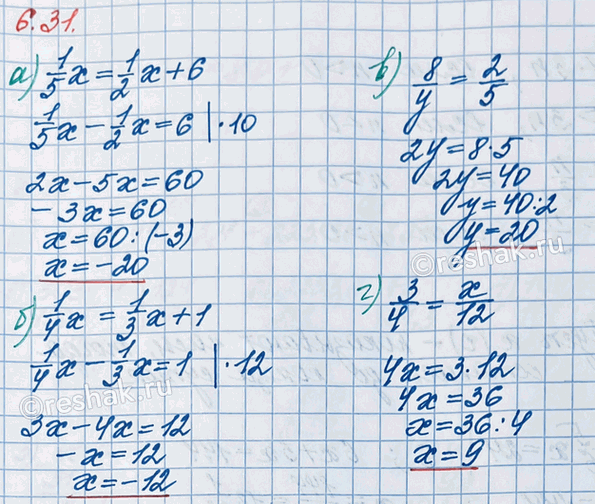 6.31.
а) 1/5 x = 1/2 x + 6
1/5 x - 1/2 x = 6 | · 10
2x - 5x = 60
- 3x = 60
x = 60 : (-3)
x = -20
б) 1/4 x = 1/3 x + 1
1/4 x - 1/3 x = 1 | · 12
3x - 4x = 12
- x = 12
x = -12
в) 8/y = 2/5
2y = 8 · 5
2y = 40
y = 40 : 2
y = 20
г) 3/4 = x/12
4x = 3 · 12
4x = 36
x = 36 : 4
x = 9
©reshak.ru
©reshak.ru
©reshak.ru